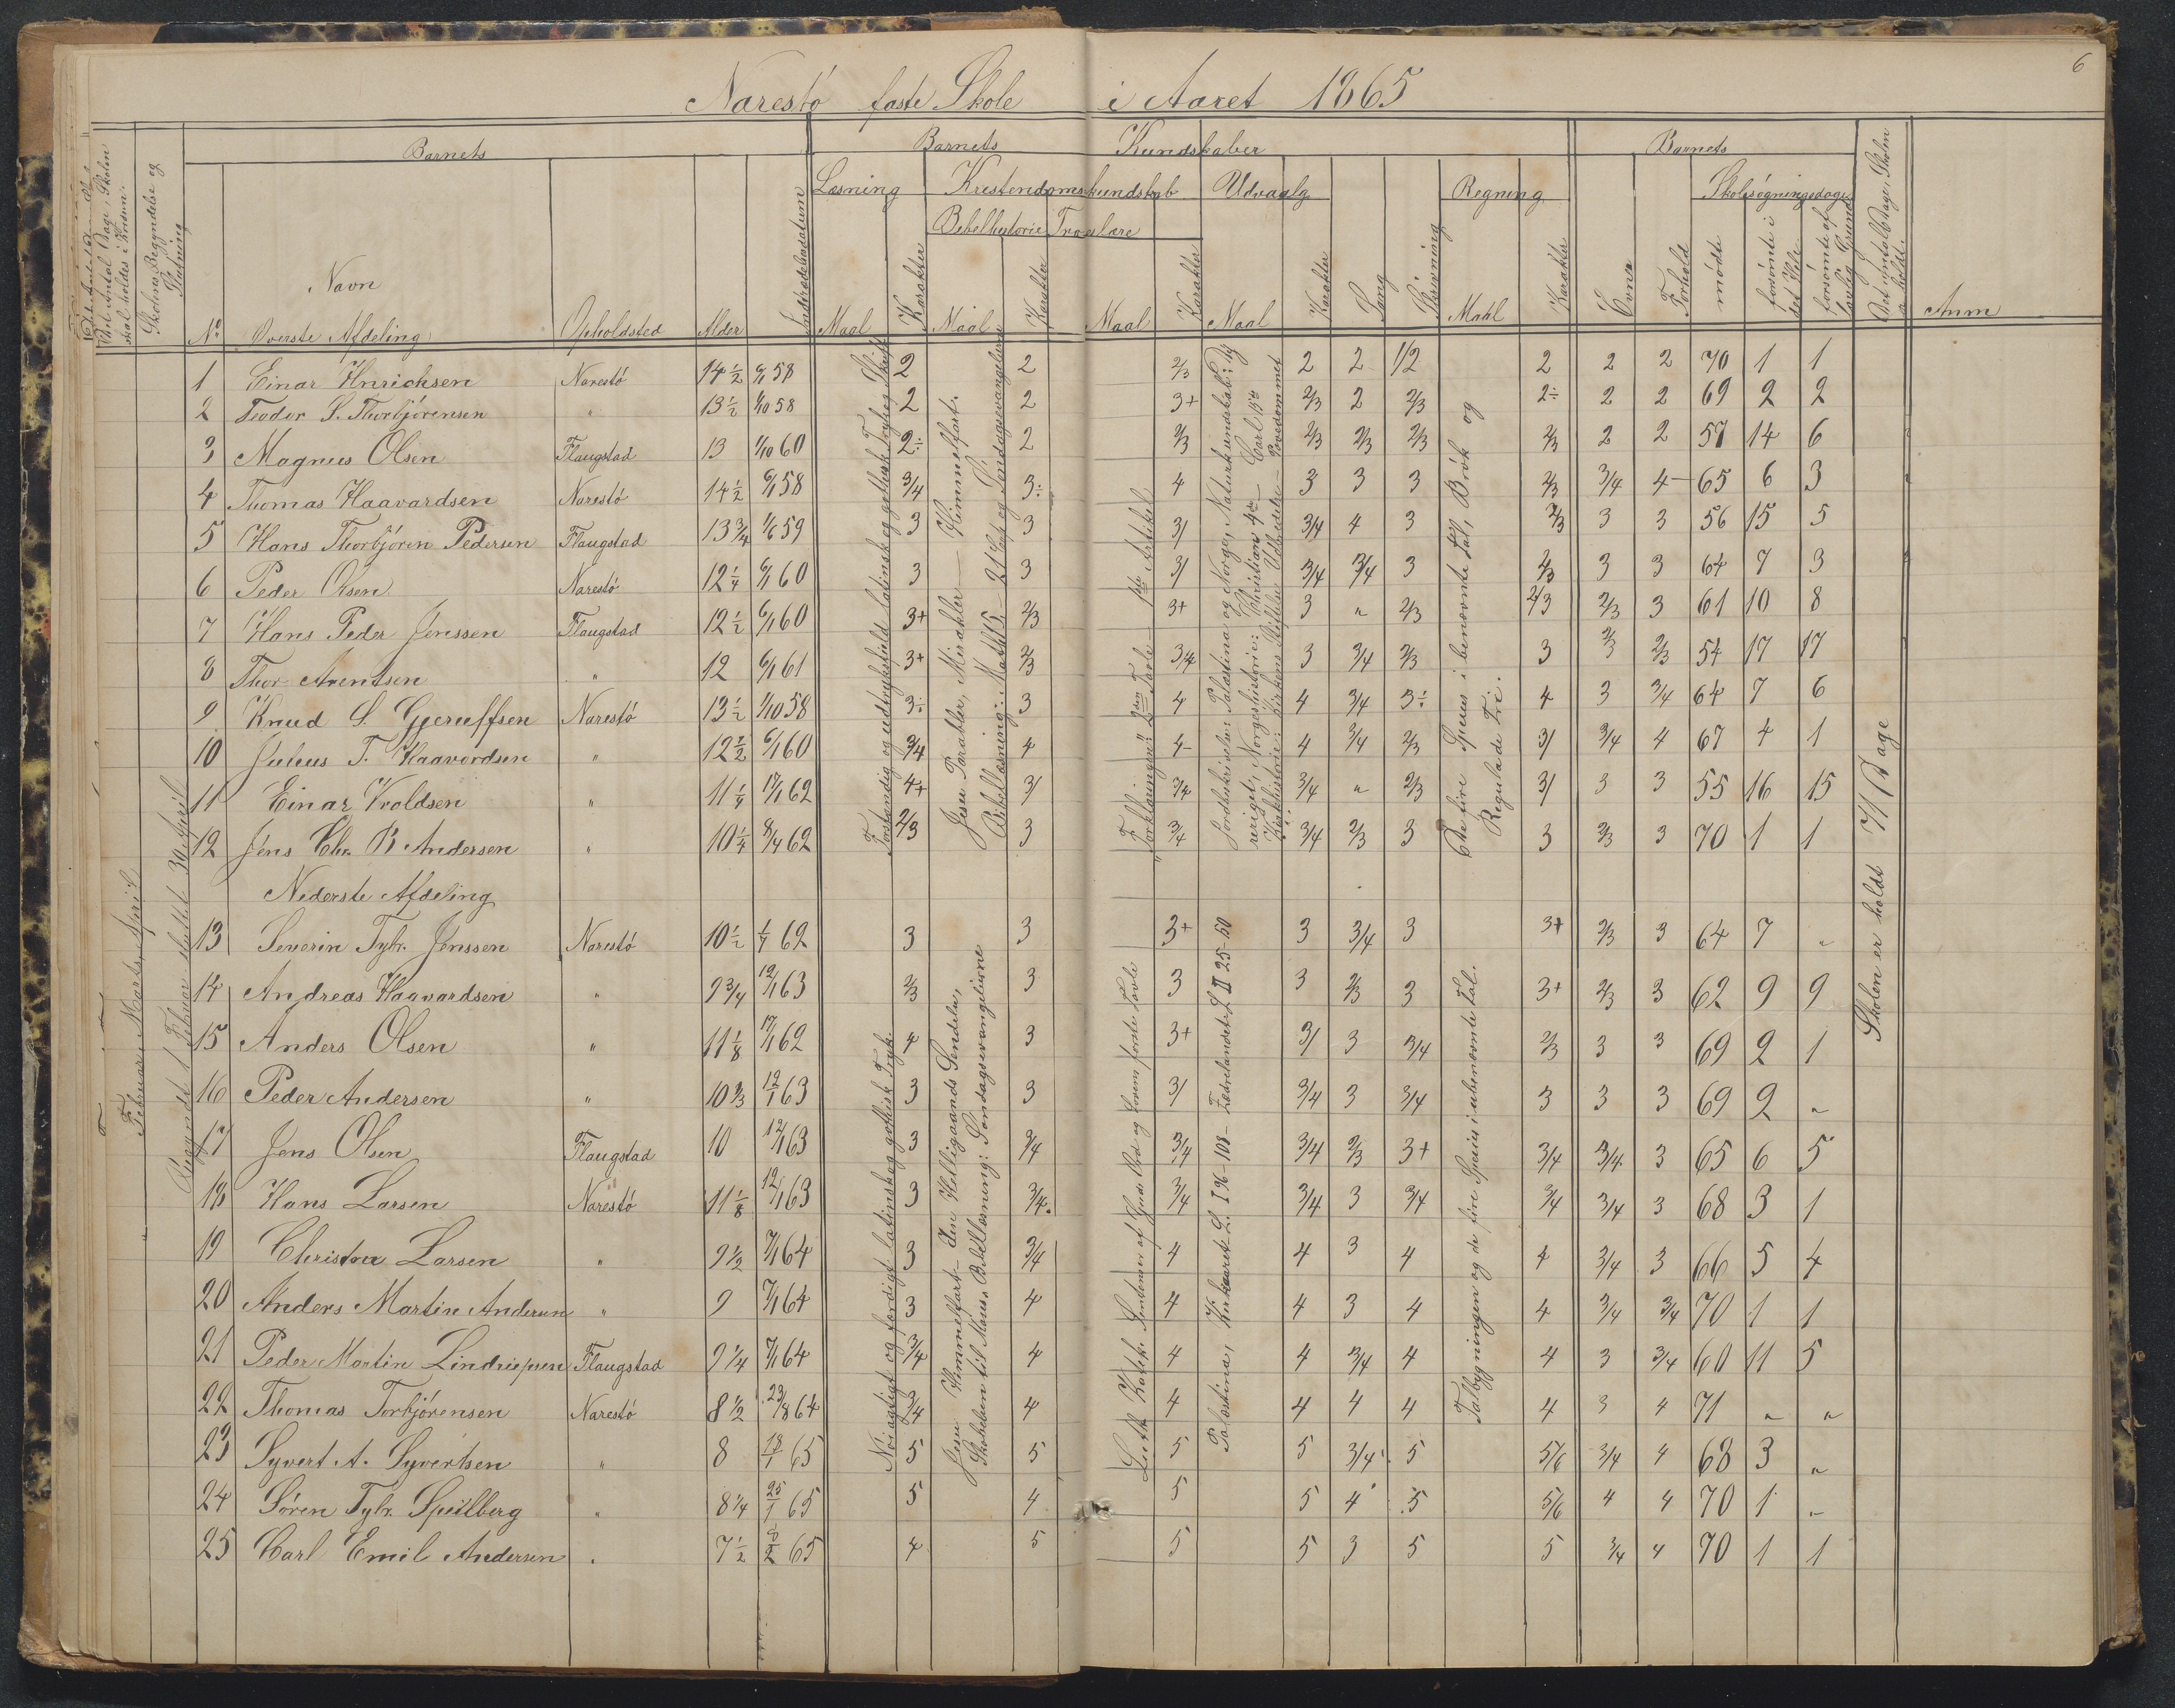 6
Narestö faste Skole i Aaret 1865
Barnets Barnets Kundskaber Barnets
Læsning Kristendomskundskab Udvalg Regning Skolesøgningsdage
Bibelhistorie Troeslære
Det Antal Dage, Skolen skal holdes i Kredsen.
Skolens Begyndelse og Slutning
Nº Navn Opholdsted Alder Indtrædelsesdatum Maal Karakter Maal Karakter Maal Karakter Maal Karakter Sang Skrivning Maal Karakter Evner Forhold mødte forsømte i det Hele forsømte af lovlig Grund Det Antal Dage, Skolen er holdt. Anm
Overste Afdeling
1 Einar Hnrichsen Narestö 14 1/2 6/1 58 2 2 2/3 2 2 1/2 2 2 2 70 1 1
2 Teodor S. Thorbjörensen " 13 1/2 1/10 58 2 2 3+ 2/3 2 2/3 2÷ 2 2 69 2 2
3 Magnus Olsen Flaugstad 13 1/10 60 2÷ 2 2/3 2/3 2/3 2/3 2/3 2 2 57 14 6
4 Thomas Haavardsen Narestö 14 1/2 6/1 58 3/4 3÷ 4 3 3 3 2/3 3/4 4- 65 6 3
5 Hans Thorbjören Pedersen Flaugstad 13 3/4 1/6 59 3 3 3/ 3/4 4 3 2/3 3 3 56 15 5
6 Peder Olsen Narestö 12 1/4 6/1 60 3 3 3/ 3/4 3/4 3 2/3 3 3 64 7 3
7 Hans Peder Jenssen Flaugstad 12 1/2 6/1 60 3+ 2/3 3+ 3 " 2/3 2/3 2/3 3 61 10 8
8 Thor Arentsen " 12 6/1 61 3+ 2/3 3/4 3 3/4 2/3 3 2/3 2/3 54 17 17
9 Knud S. Gjeruffsen Narestö 13 1/2 1/10 58 3÷ 3 4 4 3/4 3÷ 4 3 3/4 64 7 6
10 Julius T. Haavordsen " 12 1/2 6/1 60 3/4 4 4- 4 3/4 2/3 3/ 3/4 4 67 4 1
11 Einar Vroldsen " 11 1/4 17/1 62 4+ 3/ 3/4 3/4 " 2/3 3/ 3 3 55 16 15
12 Jens Chr. B Andersen " 10 1/4 8/4 62 2/3 3 3/4 3/4 2/3 3 3 2/3 3 70 1 1
Nederste Afdeling
13 Severin Tybr. Jenssen Narestö 10 1/2 1/7 62 3 3 3+ 3 3/4 3 3+ 2/3 3 64 7 "
14 Andreas Haavardsen " 9 3/4 12/1 63 2/3 3 3 3 2/3 3 3+ 2/3 3 62 9 9
15 Anders Olsen " 11 1/8 17/1 62 4 3 3+ 3/ 3 3/4 2/3 3 3 69 2 1
16 Peder Andersen " 10 2/3 12/1 63 3 3 3/ 3/4 3 3/4 3 3 3 69 2 "
17 Jens Olsen Flaugstad 10 12/1 63 3 3/4 3/4 3/4 2/3 3+ 3/4 3/4 3 65 6 5
18 Hans Larsen Narestö 11 1/8 12/1 63 3 3/4 3/4 3/4 3 3/4 3/4 3/4 3 68 3 1
19 Christra Larsen " 9 1/2 7/1 64 3 3/4 4 4 3 4 4 3/4 3 66 5 4
20 Anders Martin Andersen " 9 7/1 64 3 4 4 4 3 4 4 3/4 3/4 70 1 1
21 Peder Martin Flaugstad 9 1/4 7/1 64 3/4 4 4 4 3/4 4 4 3 3/4 60 11 5
22 Thomas Torbjörensen Narestö 8 1/2 23/8 64 3/4 4 4 4 4 4 4 3 4 71 " "
23 Syvert A. Syvertsen " 8 18/1 65 5 5 5 5 3/4 5 5/6 3/4 4 68 3 "
24 Sören Tybr. Speilberg " 8 1/4 25/1 65 5 4 5 5 4 5 5/6 4 4 70 1 "
25 Carl Emil Andersen " 7 1/2 8/2 65 4 5 5 5 3 5 5 3/4 4 70 1 1
Februar, Marts, April
Begyndt 1 Februar sluttet 30 April
Forstandig og udtryksfuld latinsk og gothisk Tryk og Skrift
Jesu Parabler, Mirakler — Himmelfart.
Bibellæsning: Matth 5 — 21 Cap. og Søndagsevangelierne
Forklaringen: 2den Tavle — 1ste Artikel
Jordbeskrivelse: Palæstina og Norge, Naturkundskab: Dyreriget, Norgeshistorie: Christian 4de — Carl 15de
Kirkehistorie: Kirkens Stiftelse Udbredelse — Pavedømmet
De fire Species i benævnte Tal, Brök og Regulade Tri.
Nöiagtigt og færdigt latinsk og gothisk Tryk.
Jesu Himmelfart — den Helligaands Sendelse,
Skabelsen til Moses, Bibellæsning: Søndagsevangelierne
Luth. Katek. Sentenser af Guds Ord og Lovens første Tavle
Palæstina, Kirkeaaret L. I 96-108 — Fædrelandet L II 25-50
Talbygningen og de fire Species i ubenævnte Tal.
Skolen er holdt 71 Dage